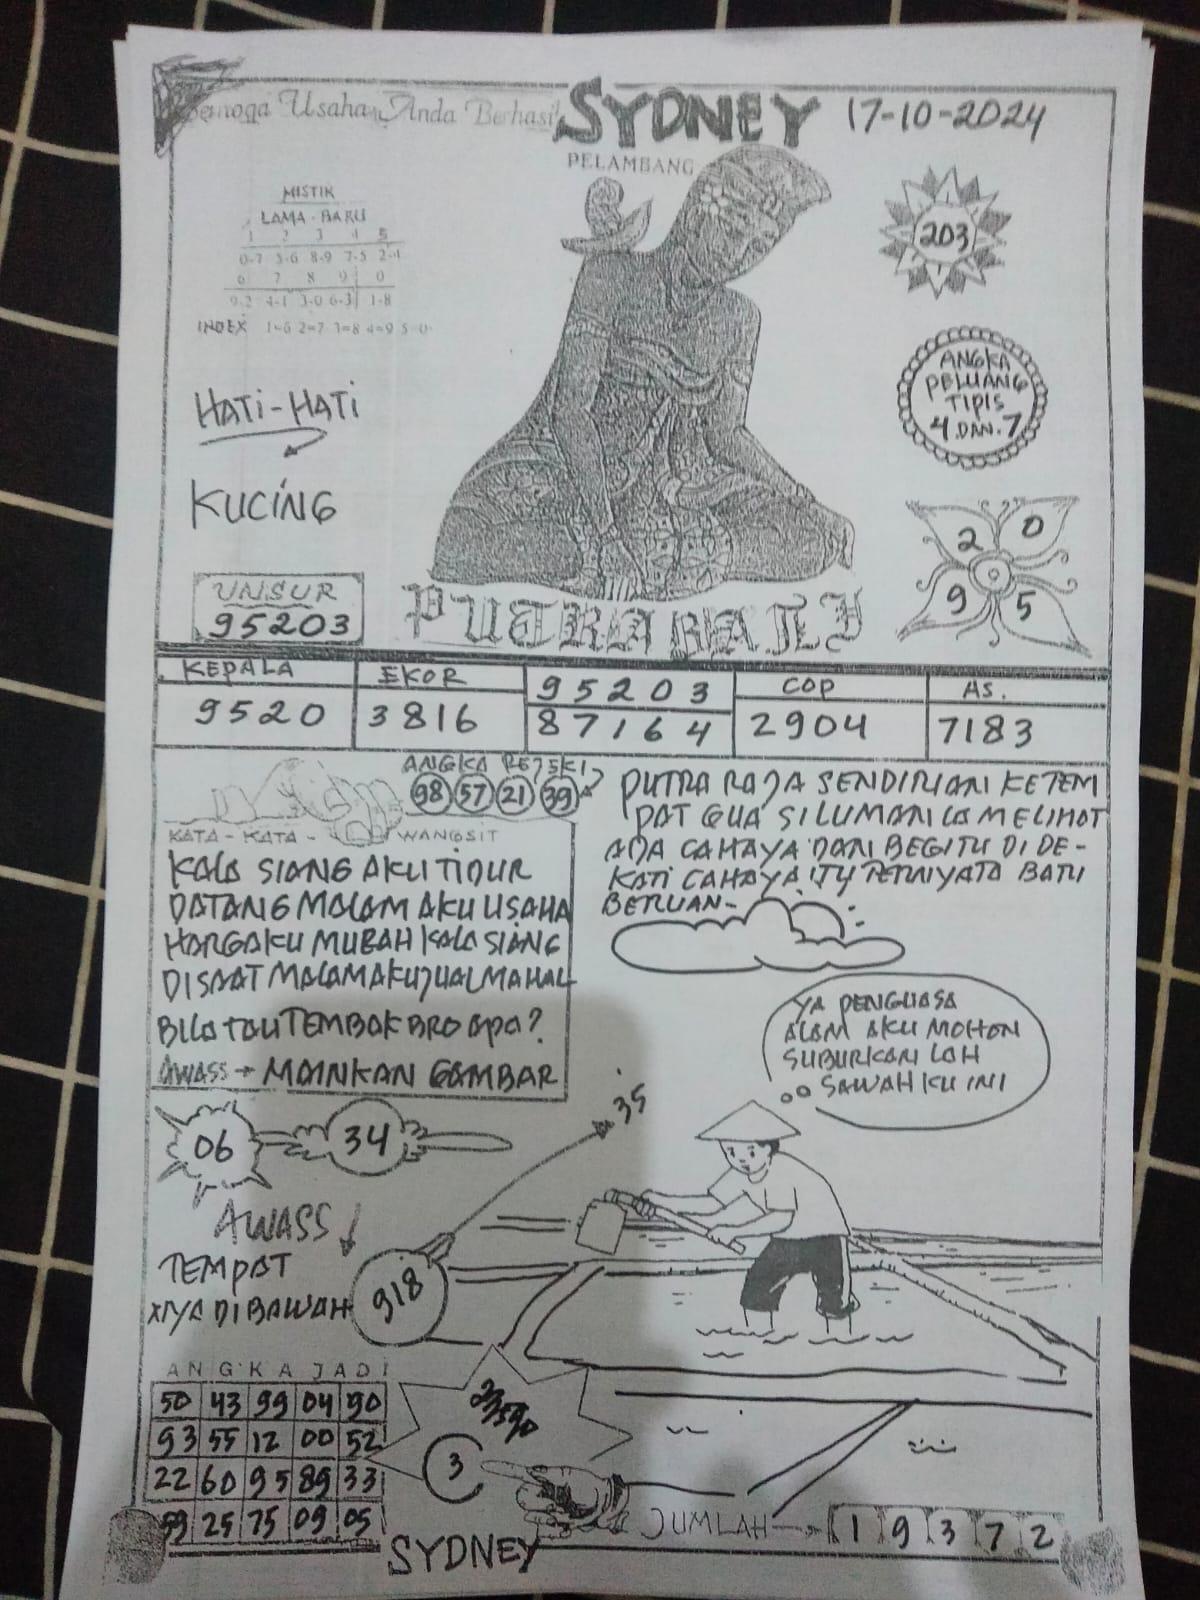 Semoga Usaha Anda Berhasil
SYDNEY 17-10-2024
PELAMBANG
MISTIK
LAMA - BARU
1 2 3 4 5
0-7 5-6 8-9 7-5 2-4
6 7 8 9 0
9-2 4-1 3-0 6-3 1-8
INDEX 1=6 2=7 3=8 4=9 5=0
203
ANGKA
PELUANG
TIPIS
4 DAN. 7
HATI-HATI
KUCING
2 0
9 5
UNSUR
95203
PUTRA BALI
KEPALA
9520
EKOR
3816
95203
87164
COP
2904
AS.
7183
ANGKA REJEKI
98 57 21 39
KATA - KATA - WANGSIT
KALA SIANG AKU TIDUR
DATANG MALAM AKU USAHA
HARGAKU MURAH KALA SIANG
DISAAT MALAM AKU JUAL MAHAL
BILA TAU TEMBAK BRO APA?
AWASS → MAINKAN GAMBAR
PUTRA RAJA SENDIRIAN KETEM
PAT GUA SILUMAN LA MELIHAT
ADA CAHAYA DAN BEGITU DI DE-
KATI CAHAYA ITU TERNYATA BATU
BERUAN-
YA PENGUASA
ALAM AKU MOHON
SUBURKAN LAH
SAWAH KU INI
06 34
35
AWASS
TEMPAT
XIYA DIBAWAH
918
ANGKA JADI
50 43 99 04 90
93 55 12 00 52
22 60 95 89 33
59 25 75 09 05
3
SYDNEY
JUMLAH → 1 9 3 7 2